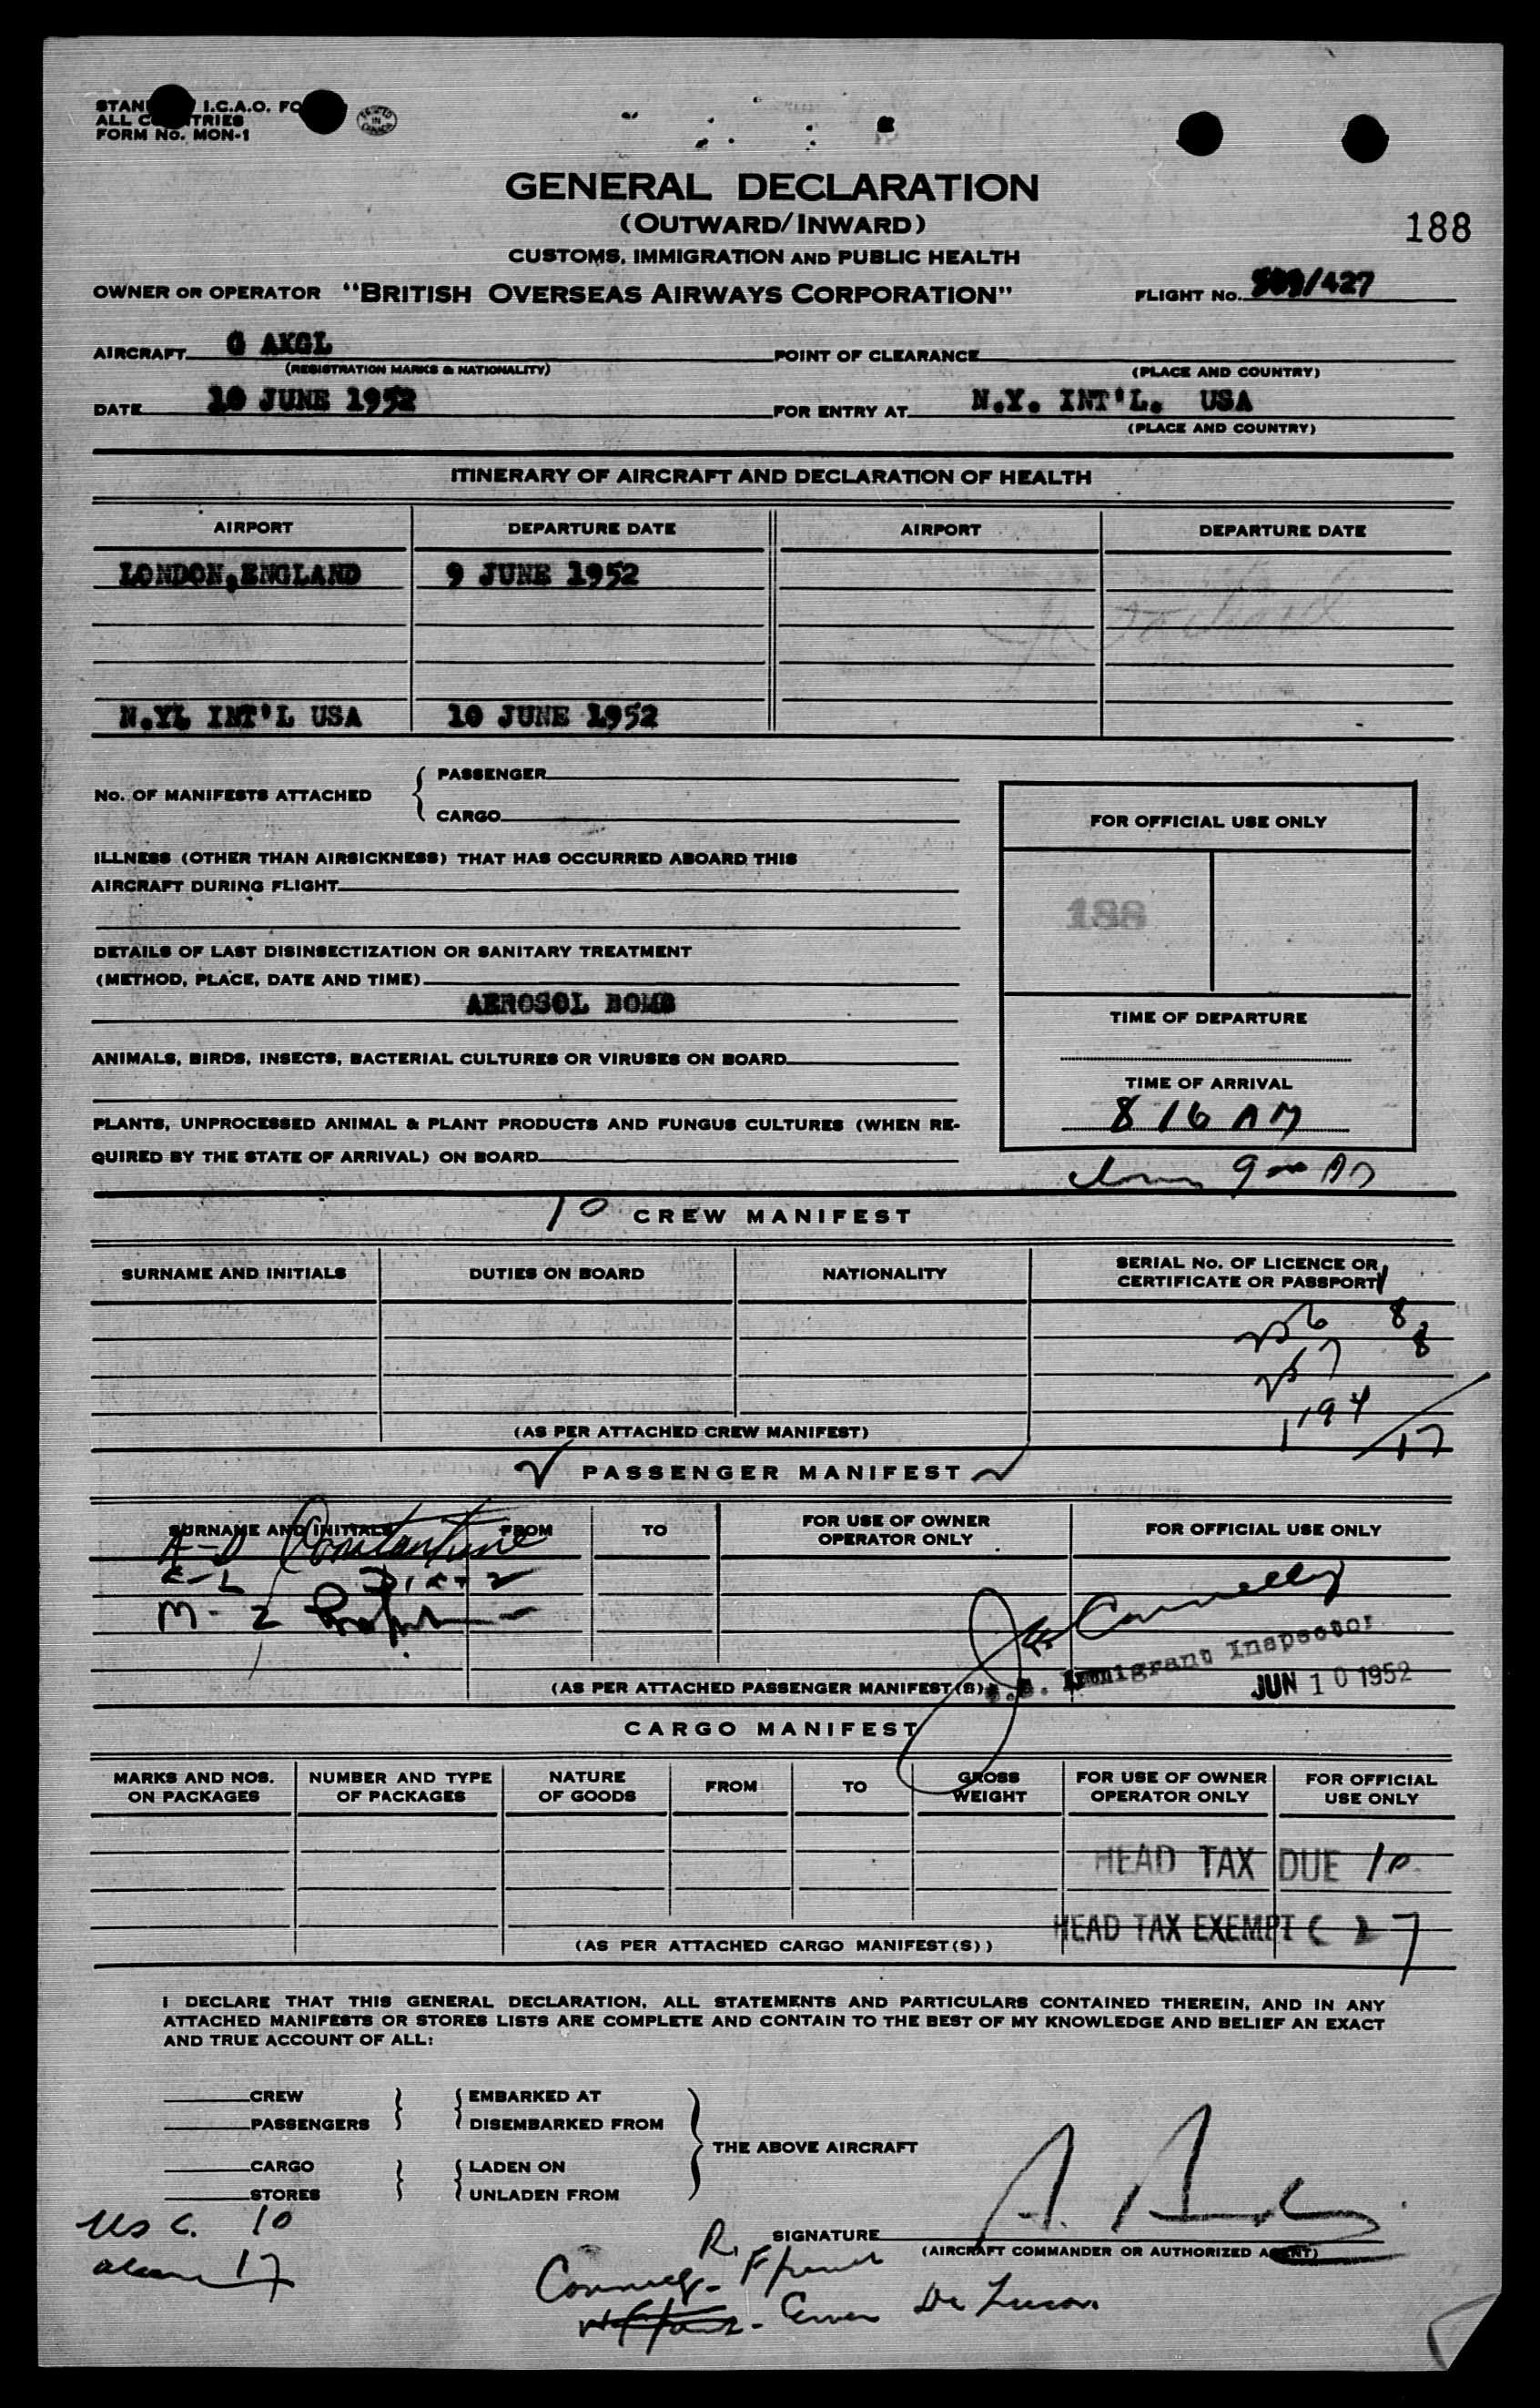 I.C.A.O.
ALL
FORM No. MON-1
GENERAL DECLARATION
(OUTWARD/INWARD)
188
CUSTOMS, IMMIGRATION AND PUBLIC HEALTH
OWNER OR OPERATOR "BRITISH OVERSEAS AIRWAYS CORPORATION" FLIGHT No. 509/427
AIRCRAFT G AKGL POINT OF CLEARANCE
(REGISTRATION MARKS & NATIONALITY) (PLACE AND COUNTRY)
DATE 10 JUNE 1952 FOR ENTRY AT N.Y. INT'L. USA
(PLACE AND COUNTRY)
ITINERARY OF AIRCRAFT AND DECLARATION OF HEALTH
AIRPORT DEPARTURE DATE AIRPORT DEPARTURE DATE
LONDON,ENGLAND 9 JUNE 1952
N.YL INT'L USA 10 JUNE 1952
No. OF MANIFESTS ATTACHED { PASSENGER
CARGO
FOR OFFICIAL USE ONLY
ILLNESS (OTHER THAN AIRSICKNESS) THAT HAS OCCURRED ABOARD THIS
AIRCRAFT DURING FLIGHT
188
DETAILS OF LAST DISINSECTIZATION OR SANITARY TREATMENT
(METHOD, PLACE, DATE AND TIME)
AEROSOL BOMB
TIME OF DEPARTURE
ANIMALS, BIRDS, INSECTS, BACTERIAL CULTURES OR VIRUSES ON BOARD
TIME OF ARRIVAL
8 16 AM
PLANTS, UNPROCESSED ANIMAL & PLANT PRODUCTS AND FUNGUS CULTURES (WHEN RE-
QUIRED BY THE STATE OF ARRIVAL) ON BOARD
10 CREW MANIFEST
SURNAME AND INITIALS DUTIES ON BOARD NATIONALITY SERIAL No. OF LICENCE OR
CERTIFICATE OR PASSPORT
8
8
194
17
(AS PER ATTACHED CREW MANIFEST)
PASSENGER MANIFEST
SURNAME AND INITIALS FROM TO FOR USE OF OWNER
OPERATOR ONLY
FOR OFFICIAL USE ONLY
A-D Constantine
E-L
M-Z
Connelly
Immigrant Inspector
JUN 10 1952
(AS PER ATTACHED PASSENGER MANIFEST(S))
CARGO MANIFEST
MARKS AND NOS.
ON PACKAGES
NUMBER AND TYPE
OF PACKAGES
NATURE
OF GOODS
FROM TO GROSS
WEIGHT
FOR USE OF OWNER
OPERATOR ONLY
FOR OFFICIAL
USE ONLY
HEAD TAX DUE 10
HEAD TAX EXEMPT
7
(AS PER ATTACHED CARGO MANIFEST(S))
I DECLARE THAT THIS GENERAL DECLARATION, ALL STATEMENTS AND PARTICULARS CONTAINED THEREIN, AND IN ANY
ATTACHED MANIFESTS OR STORES LISTS ARE COMPLETE AND CONTAIN TO THE BEST OF MY KNOWLEDGE AND BELIEF AN EXACT
AND TRUE ACCOUNT OF ALL:
CREW EMBARKED AT
PASSENGERS DISEMBARKED FROM
THE ABOVE AIRCRAFT
CARGO LADEN ON
STORES UNLADEN FROM
USC. 10
SIGNATURE
(AIRCRAFT COMMANDER OR AUTHORIZED AGENT)
17